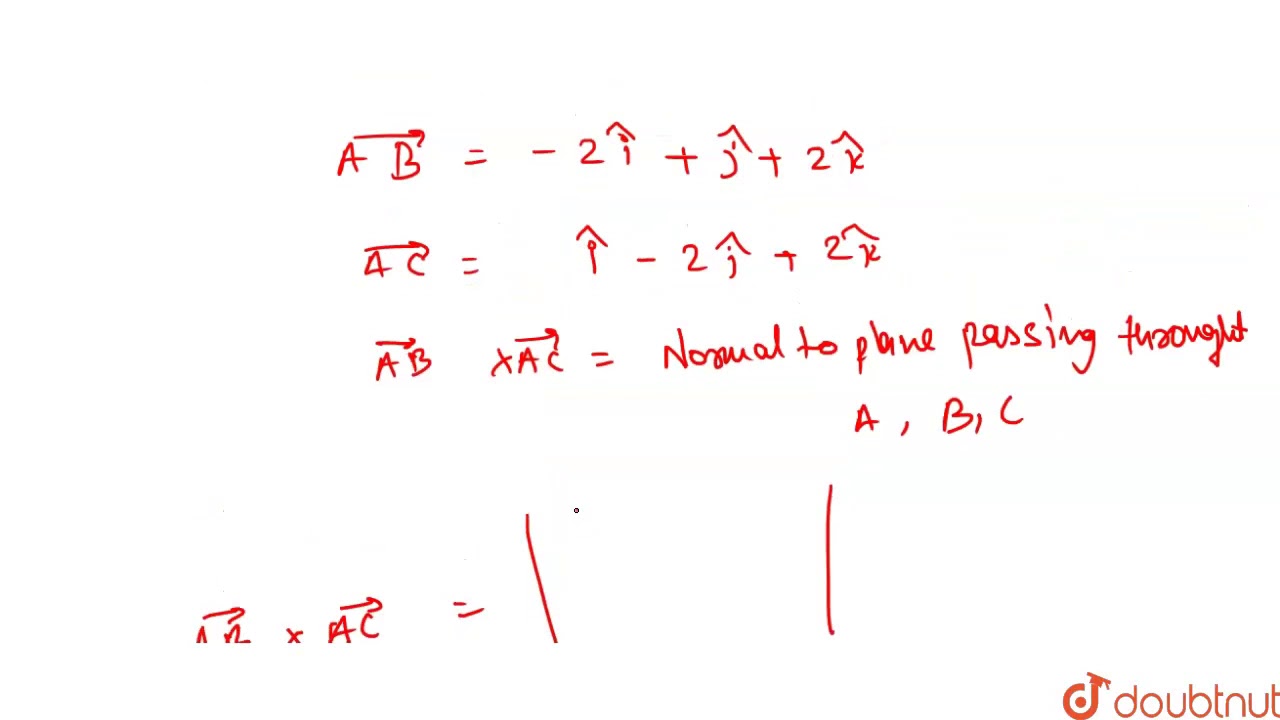 AB = - 2î + ĵ + 2k̂
AC = î - 2ĵ + 2k̂
AB × AC = Normal to plane passing throught
A, B, C
AB × AC =
doubtnut